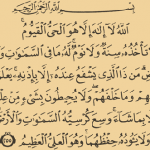 بسم الله الرحمن الرحيم
الله لا إله إلا هو الحي القيوم
تأخذه سنة ولا نوم له ما في السموات و
ض من ذا الذي يشفع عنده إلا بإذنه يعلم
هم وما خلفهم ولا يحيطون بشيء من عل
بما شاء وسع كرسيه السموات والأر
ولا يئوده حفظهما وهو العلي العظيم